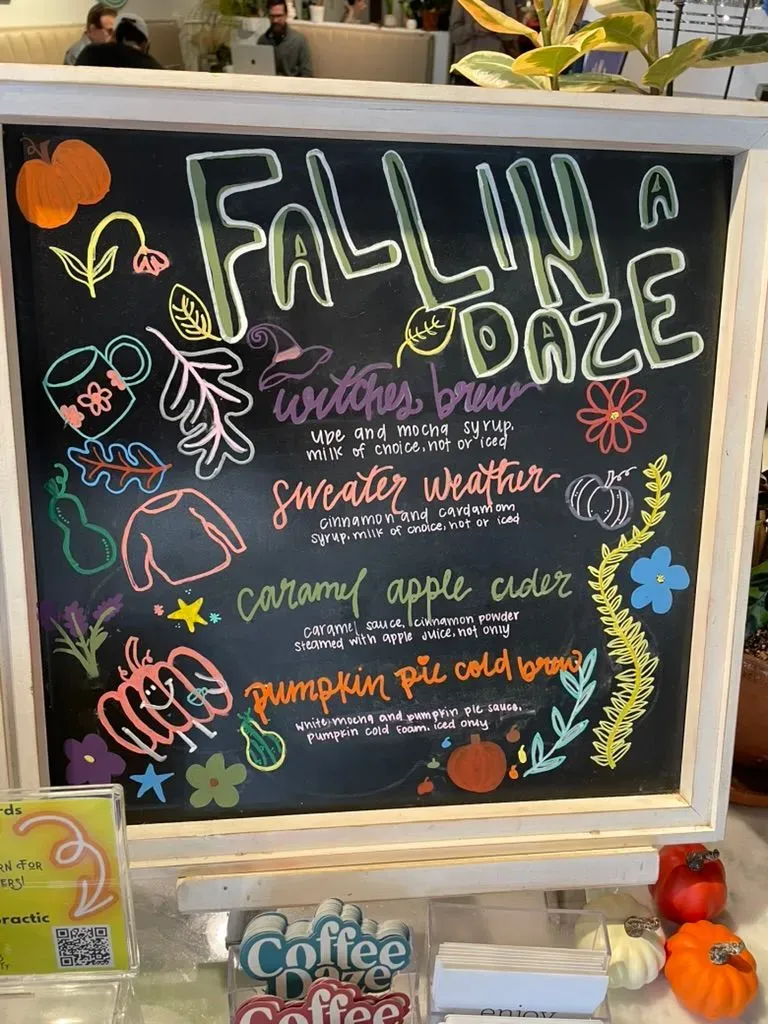 FALL IN A
DAZE
witches brew
ube and mocha syrup,
milk of choice, hot or iced
sweater weather
cinnamon and cardamom
syrup, milk of choice, hot or iced
caramel apple cider
caramel sauce, cinnamon powder
steamed with apple juice, hot only
pumpkin pie cold brew
white mocha and pumpkin pie sauce,
pumpkin cold foam. iced only
rds
RN FOR
ERS!
practic
Coffee
Daze
Coffee
enjoy